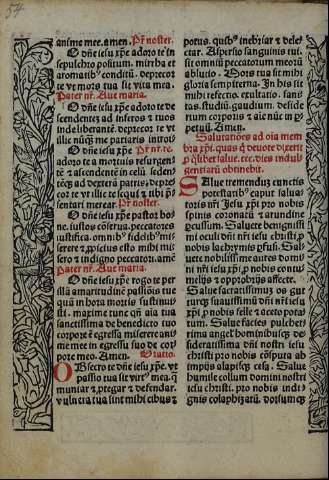 54
anime mee. amen. Pr̄ noster.
O dn̄e iesu xp̄e adoro te in
sepulchro positum, mirrha et
aromatib⁹ conditū. deprecor
te vt mors tua sit vita mea.
Pater nr̄. Aue maria.
O dn̄e iesu xp̄e adoro te de
scendentez ad inferos ⁊ tuos
inde liberantē. deprecor te vt
illic nūq̄ me p̄tiaris introi
O dn̄e iesu xp̄e
adoro te a mortuis resurgen
tē ⁊ ascendentē in celū seden
tēq̄z ad dexterā patris, depre
cor te vt illic te sequi ⁊ tibi p̄
sentari merear. Pr̄ noster.
O dn̄e iesu xp̄e pastor bo
ne. iustos cōserua. peccatores
iustifica. omnib⁹ fidelib⁹ mi
serere ⁊ ꝓpicius esto mihi mi
sero ⁊ indigno peccatori. amē
Pater nr̄. Aue maria.
O dn̄e iesu xp̄e rogo te per
illā amaritudinē passiois tue
quā in hora mortis sustinui
sti. maxime tunc qn̄ aīa tua
sanctissima de benedicto tuo
corpore ē egressa miserere ani
me mee in egressu suo de cor
pore meo. Amen. Oratio.
Obsecro te dn̄e iesu xp̄e. vt
passio tua sit virt⁹ mea. q̄
muniar ⁊ ꝓtegar ⁊ defendar.
vulnera tua sint mihi cibus ⁊
potus. quib⁹ inebriar ⁊ dele
ctar. Aspersio sanguinis tui.
sit omniū peccatorum meorū
ablutio. Mors tua sit mihi
gloria sempiterna. In his sit
mihi refectio. exultatio. sani
tas. studiū. gaudium. deside
rium corporis ⁊ aīe nūc in ꝑ
petuū. Amen.
Salutationes ad oīa mem
bra xp̄i. quas q̄ deuote dixerit
Salue tremendus cunctis
potestatib⁹ caput salua
toris nr̄i Iesu xp̄i pro nobis
spinis coronatū ⁊ arundine
ꝑcussum. Saluete benignissi
mi oculi dn̄i nr̄i iesu christi ꝓ
nobis lachrymis ꝑfusi. Sal
uete nobilissime aures domi
ni nr̄i iesu xp̄i ꝓ nobis contu
melijs ⁊ opprobrijs affecte.
Salue sacratissimū os gut
turq̄z suauissimū dn̄i nr̄i iesu
xp̄i ꝓ nobis felle ⁊ aceto pota
tum. Salue facies pulcherri
ma angel' hominibusq̄z de
siderantissima dn̄i nostri iesu
christi pro nobis cōsputa ab
impijs alapisq̄z cesa. Salue
humile collum domini nostri
iesu christi. pro nobis indi
gnis colaphizatū. dorsumq̄z